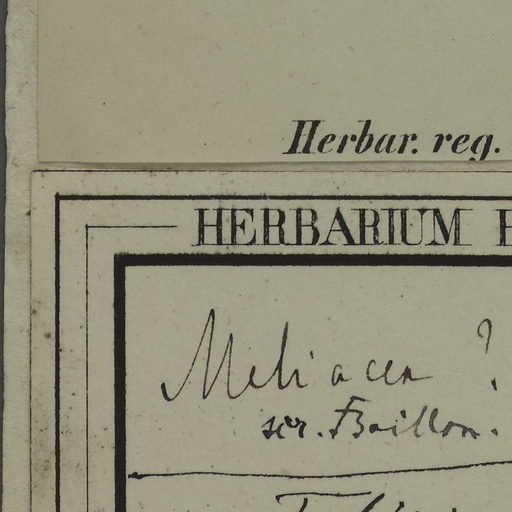 Herbar. reg.
HERBARIUM
Meliacea ?
scr. Baillon.